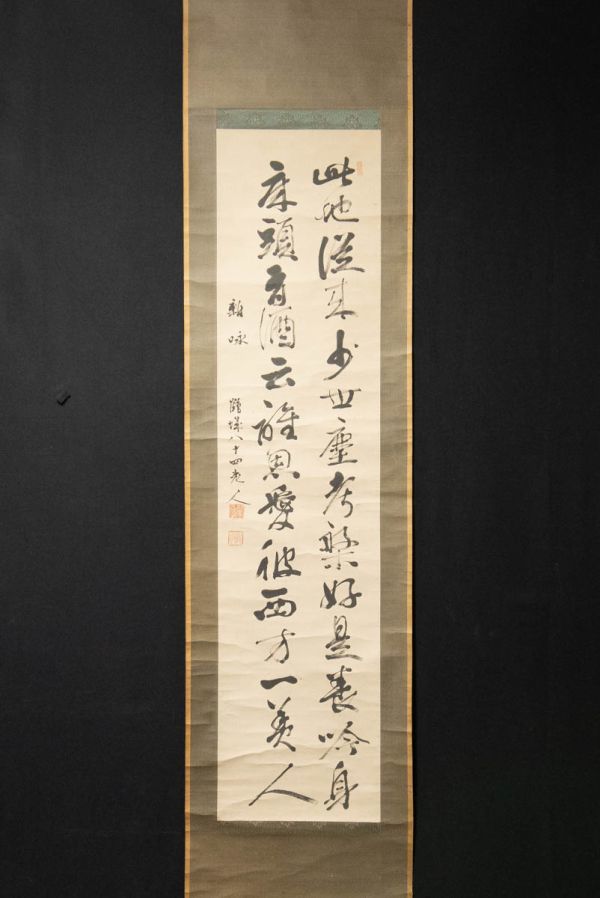 此地從来少世塵考槃好是養吟身
床頭有酒云誰思愛彼西方一美人
雜咏
八十四老人